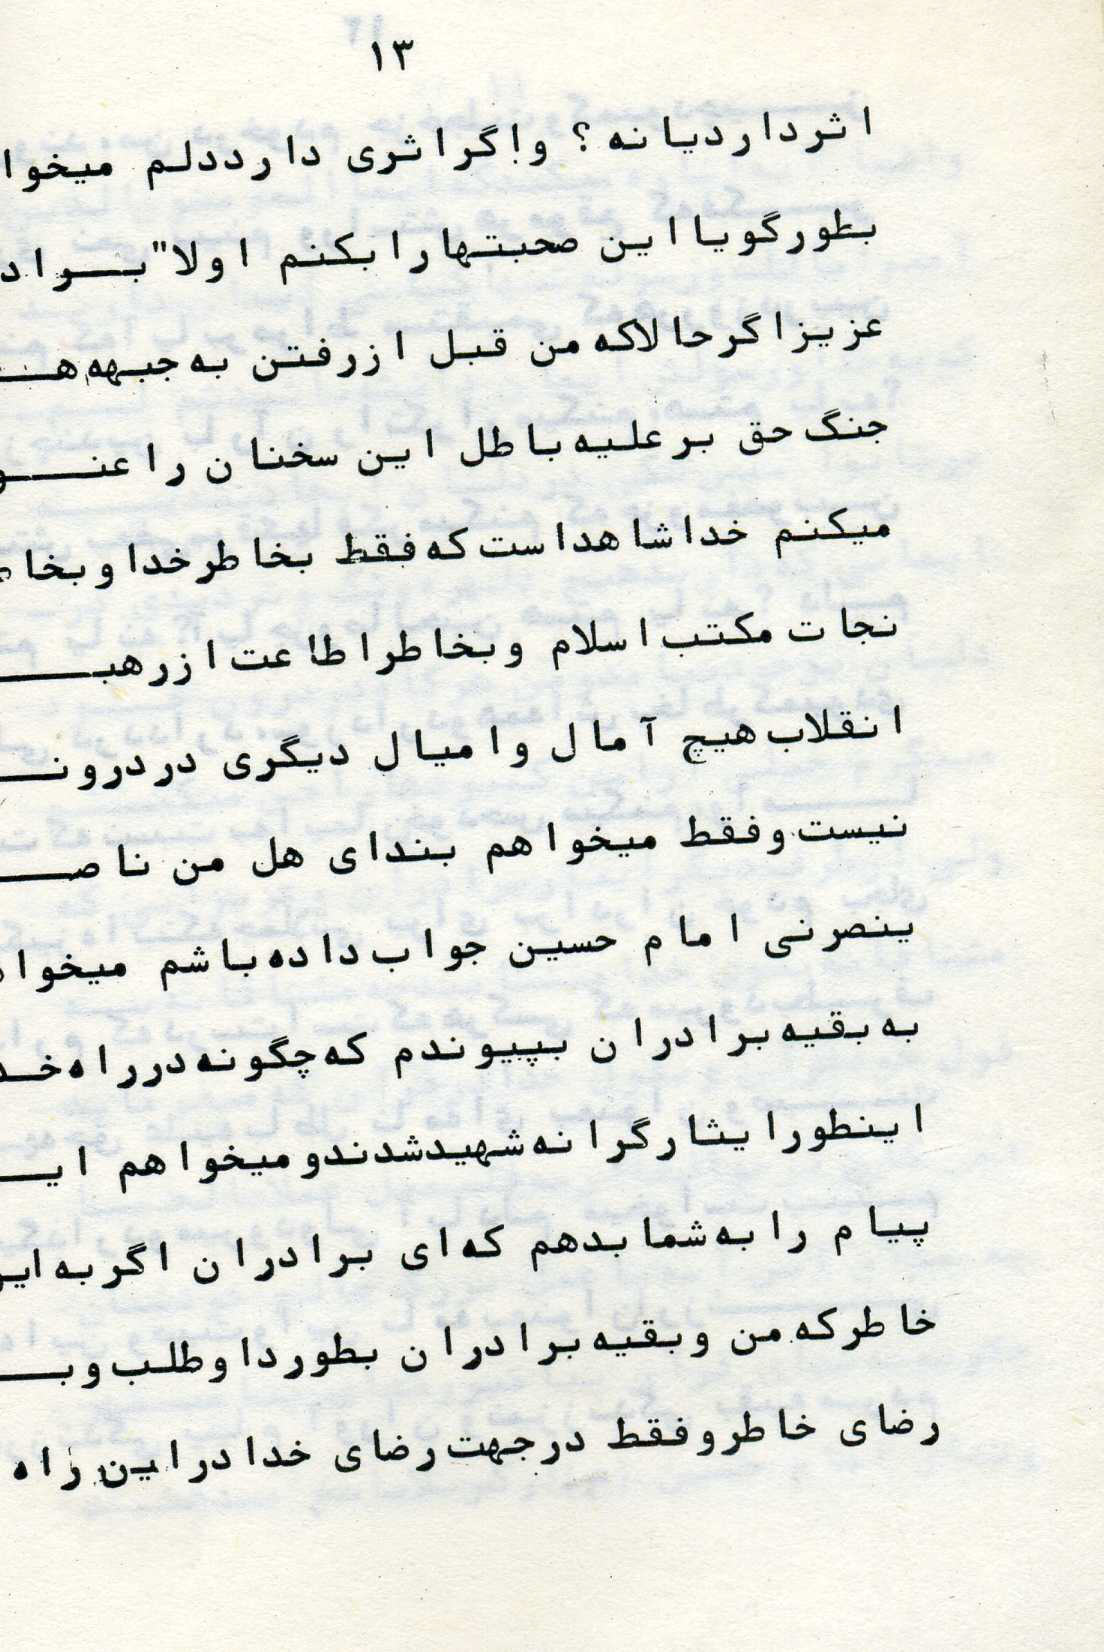 ۱۳
اثر دارد یا نه؟ و اگر اثری دارد دلم میخوا
بطور گویا این صحبتها را بکنم اولا" براد
عزیز اگر حالا که من قبل از رفتن به جبهه هـ
جنگ حق بر علیه باطل این سخنان را عنو
میکنم خدا شاهد است که فقط بخاطر خدا و بخا
نجات مکتب اسلام و بخاطر اطاعت از رهبـ
انقلاب هیچ آمال و امیال دیگری در درونـ
نیست و فقط میخواهم بندای هل من ناصـ
ینصرنی امام حسین جواب داده باشم میخوا
به بقیه برادران بپیوندم که چگونه در راه خد
اینطور ایثارگرانه شهید شدند و میخواهم ایـ
پیام را به شما بدهم که ای برادران اگر به این
خاطر که من و بقیه برادران بطور داوطلب و بـ
رضای خاطر و فقط در جهت رضای خدا در این راه